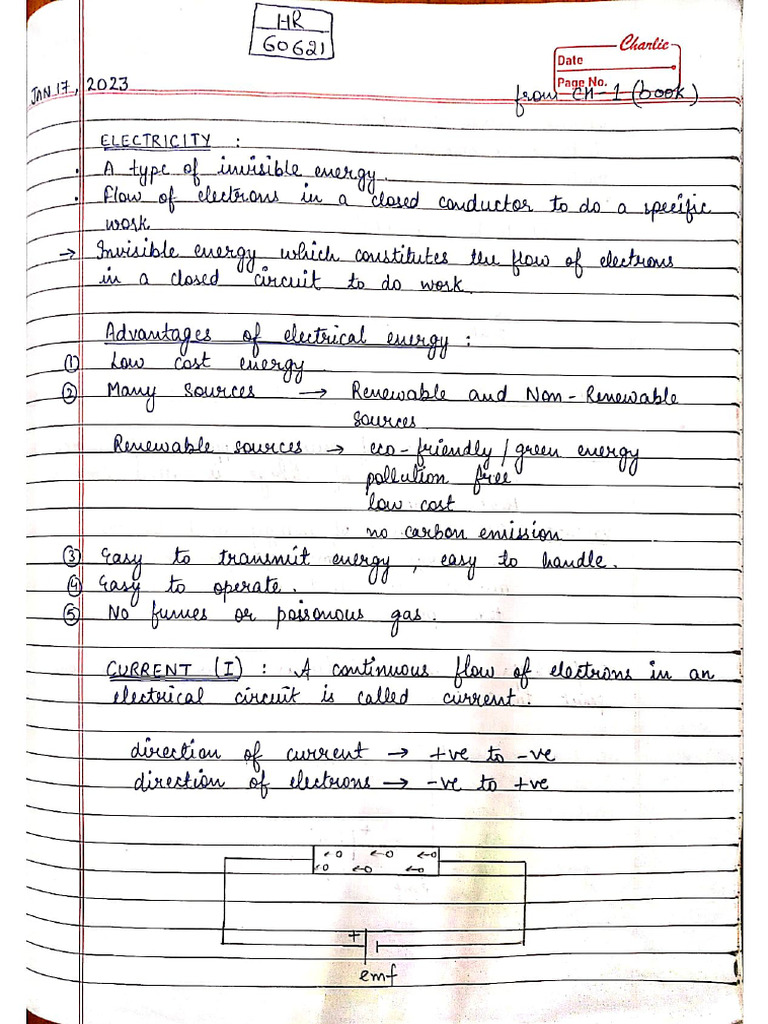 HR
60621
Charlie
Date
Page No.
JAN 17, 2023
from CH-1 (book)
ELECTRICITY :
• A type of invisible energy.
• Flow of electrons in a closed conductor to do a specific
work
→ Invisible energy which constitutes the flow of electrons
in a closed circuit to do work.
Advantages of electrical energy :
① Low cost energy
② Many sources → Renewable and Non-Renewable
sources.
Renewable sources → eco-friendly / green energy
pollution free
low cost
no carbon emission
③ Easy to transmit energy, easy to handle.
④ Easy to operate.
⑤ No fumes or poisonous gas.
CURRENT (I) : A continuous flow of electrons in an
electrical circuit is called current.
direction of current → +ve to -ve
direction of electrons → -ve to +ve
+
emf